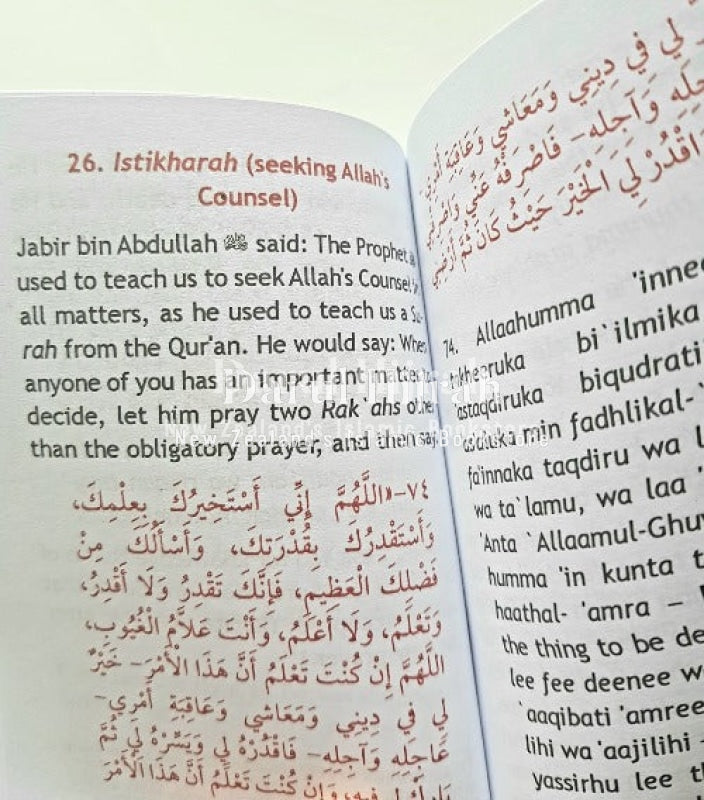 26. Istikharah (seeking Allah's
Counsel)
Jabir bin Abdullah ﷺ said: The Prophet
used to teach us to seek Allah's Counsel in
all matters, as he used to teach us a Su-
rah from the Qur'an. He would say: When
anyone of you has an important matter to
decide, let him pray two Rak`ahs other
than the obligatory prayer, and then say:
٧٤-«اللَّهُمَّ إِنِّي أَسْتَخِيرُكَ بِعِلْمِكَ،
وَأَسْتَقْدِرُكَ بِقُدْرَتِكَ، وَأَسْأَلُكَ مِنْ
فَضْلِكَ الْعَظِيمِ، فَإِنَّكَ تَقْدِرُ وَلَا أَقْدِرُ،
وَتَعْلَمُ، وَلَا أَعْلَمُ، وَأَنْتَ عَلَّامُ الْغُيُوبِ،
اللَّهُمَّ إِنْ كُنْتَ تَعْلَمُ أَنَّ هَذَا الْأَمْرَ- خَيْرٌ
لِي فِي دِينِي وَمَعَاشِي وَعَاقِبَةِ أَمْرِي-
عَاجِلِهِ وَآجِلِهِ- فَاقْدُرْهُ لِي وَيَسِّرْهُ لِي ثُمَّ
بَارِكْ لِي فِيهِ، وَإِنْ كُنْتَ تَعْلَمُ أَنَّ هَذَا الْأَمْرَ
لِي فِي دِينِي وَمَعَاشِي وَعَاقِبَةِ أَمْرِي
وَآجِلِهِ- فَاصْرِفْهُ عَنِّي وَاصْرِفْنِي
اقْدُرْ لِيَ الْخَيْرَ حَيْثُ كَانَ ثُمَّ أَرْضِنِي
74. Allaahumma 'innee
bi`ilmika
'astaqdiruka biqudrati
min fadhlikal-`
fa'innaka taqdiru wa l
wa ta`lamu, wa laa '
'Anta `Allaamul-Ghuy
humma 'in kunta t
haathal- 'amra –
the thing to be de
lee fee deenee w
`aaqibati 'amree
lihi wa 'aajilihi -
yassirhu lee th
Darul Hijrah
New Zealand's Islamic Bookstore